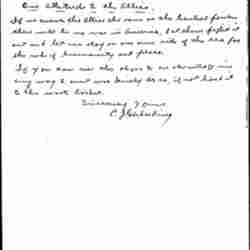 Our Attitude to the Allies.
If we        the Allies the same as the Central Powers
there will be no war in America, Let them fight it
out and let us stay on our own side of the sea for
the sake of humanity and peace.
If you can use the above to an advantage in
any way I              do so, if not       it
to the waste basket.
Sincerely Yours
C.